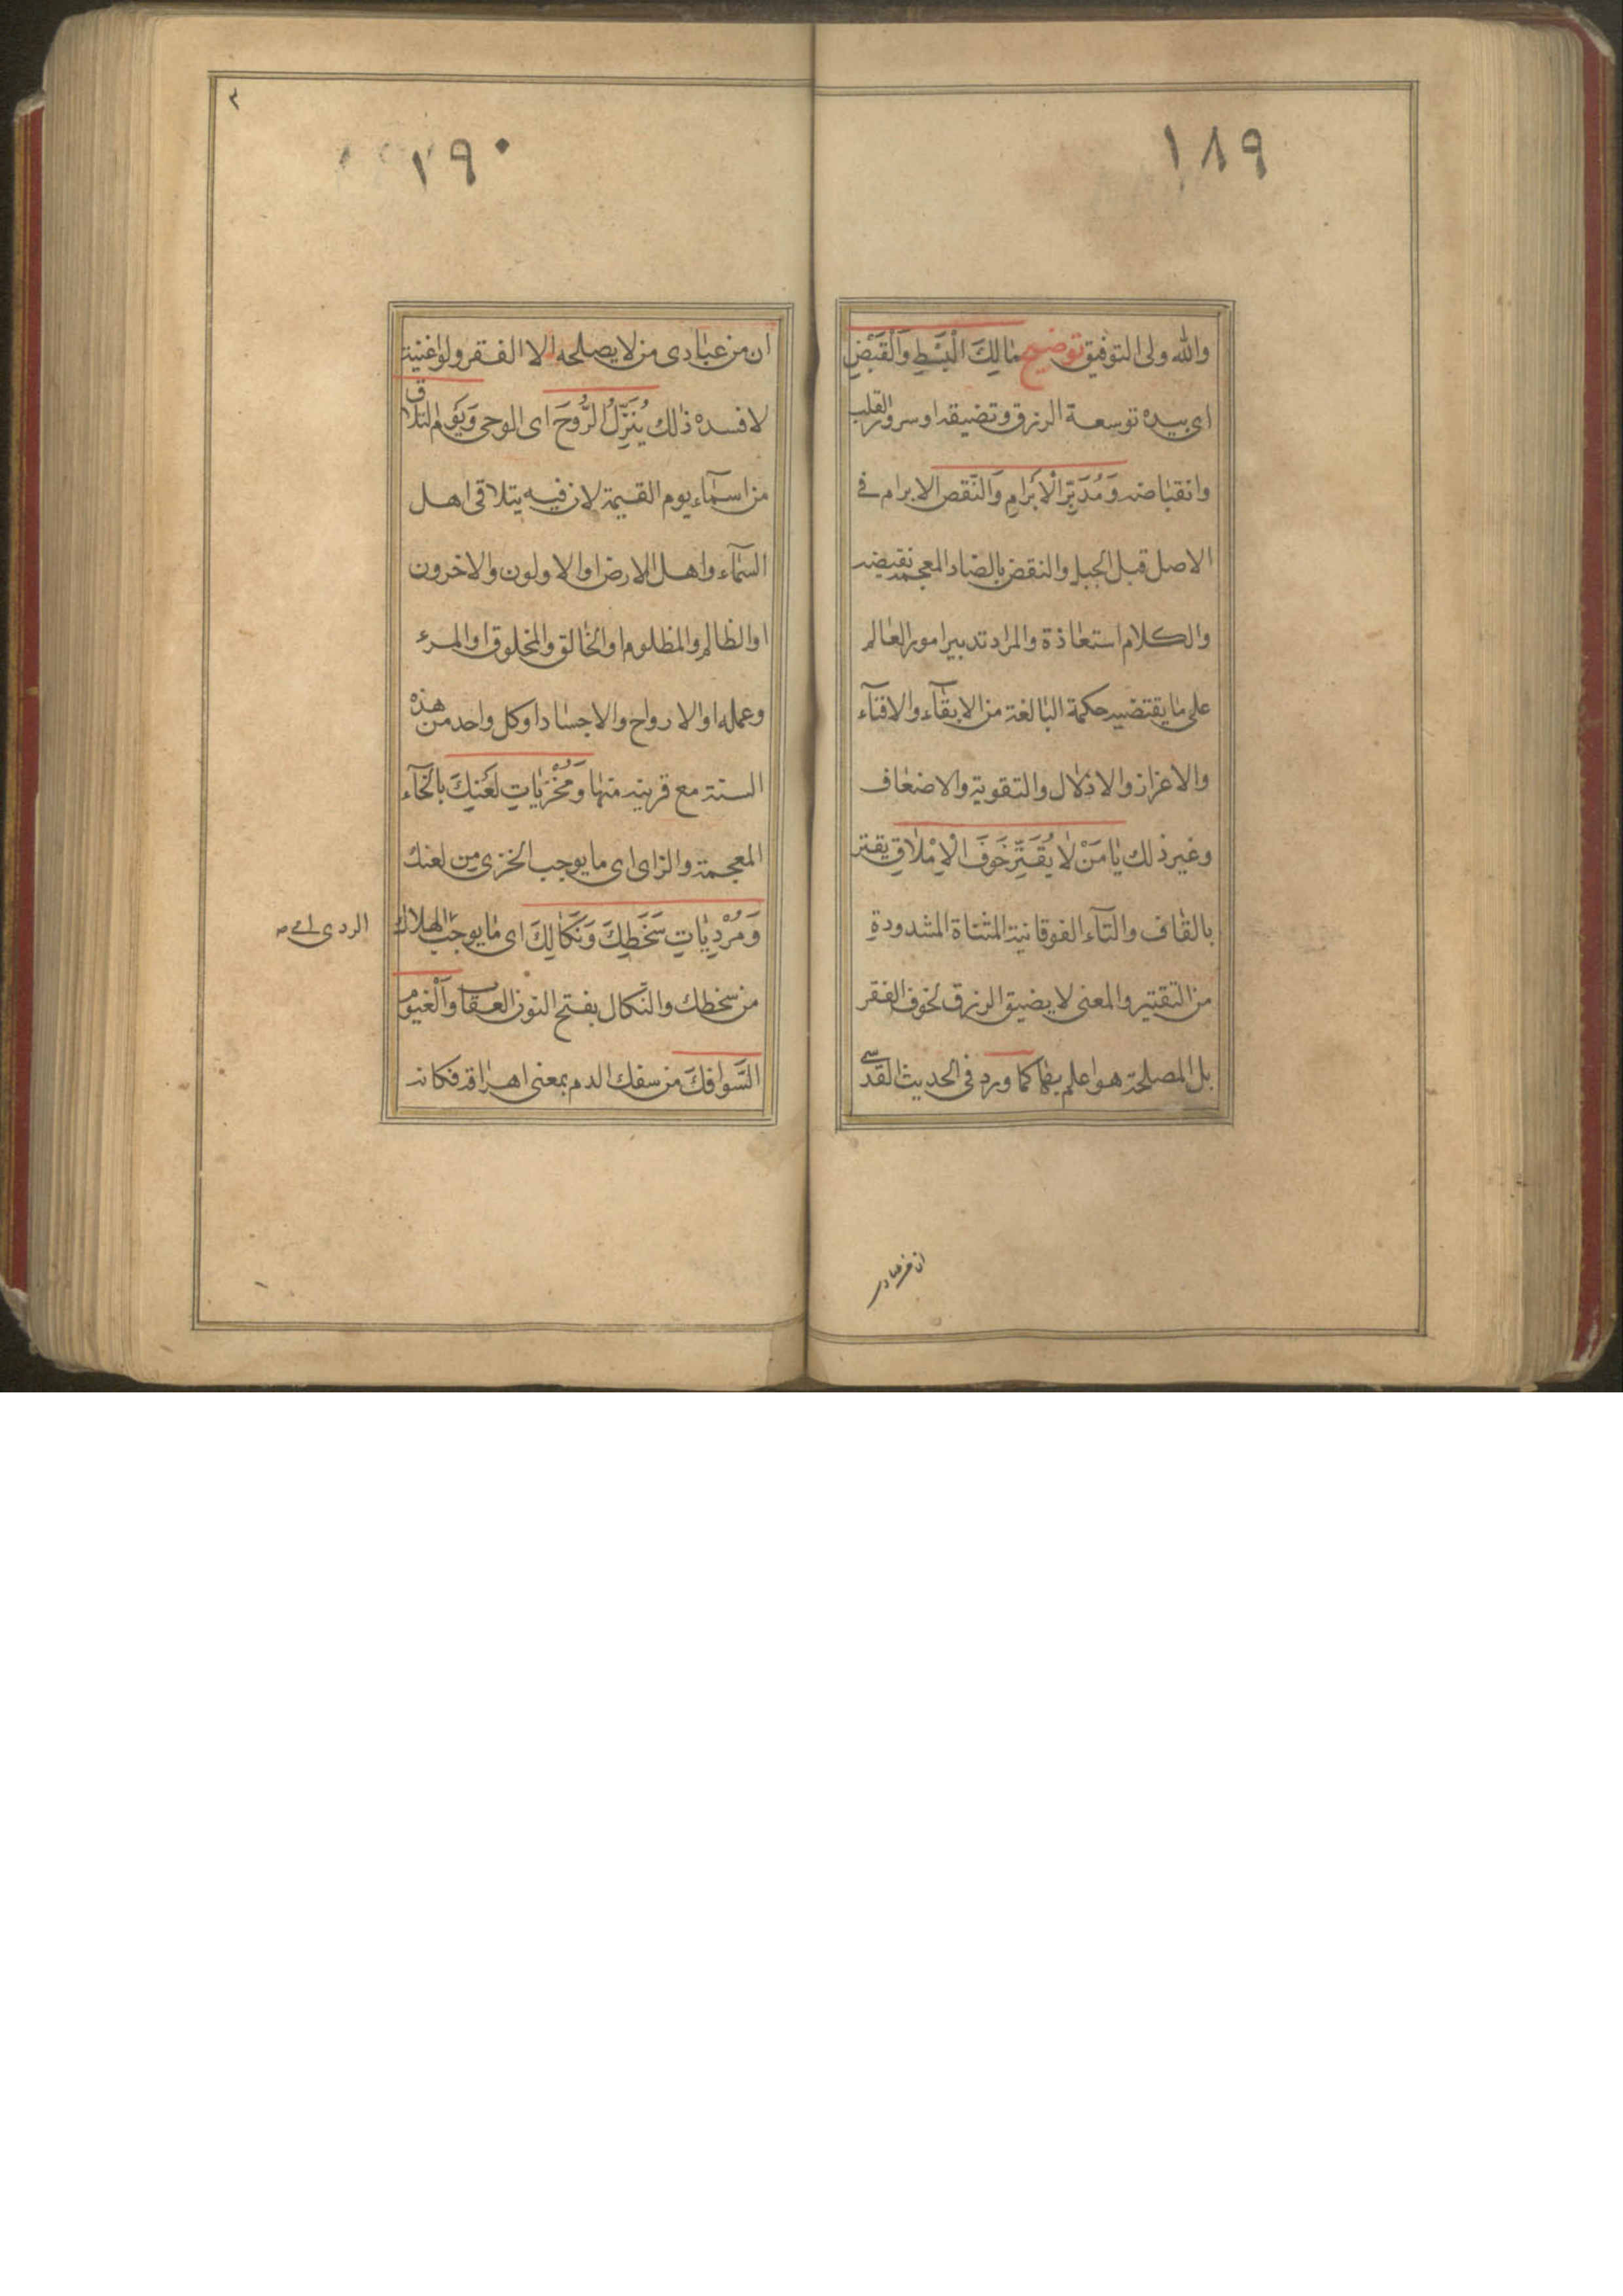 ١٨٩
والله ولى التوفيق توضيح مَالِكَ الْبَسْطِ وَالْقَبْضِ
اى بيده توسعة الرزق وتضيقه او سرور القلب
وانقباضه وَمُدَبِّرَ الْاَبْرَامِ وَالنَّقْضِ الابرام فى
الاصل قبل الحبل والنقض بالضاد المعجمة نقيضه
والكلام استعاذة والمراد تدبير امور العالم
على ما يقتضيه حكمة البالغة من الابقآء والافنآء
والاعزاز والاذلال والتقوية والاضعاف
وغير ذلك يَا مَنْ لَا يُقَتِّرُ خَوفَ الْاِمْلَاقِ يقتر
بالقاف والتآء الفوقانية المثناة المشدودةِ
من التقتير والمعنى لا يضيق الرزق لخوف الفقر
بل المصلحة هو اعلم بها كما ورد فى الحديث القدسى
ان من عبادى
٣
١٩٠
ان من عبادى من لا يصلحه الا الفقر ولو اغنيته
لافسده ذلك يُنَزِّلُ الرُّوحَ اى الوحى وَيَوم التلاق
من اسمآء يوم القيمة لان فيه يتلاقى اهل
السمآء واهل الارض او الاولون والاخرون
او الظالم والمظلوم او الخالق والمخلوق او المرء
وعمله او الارواح والاجساد او كل واحد من هذه
الستة مع قرينه منها وَمُخْزِيَاتِ لَعْنِكَ بالخآء
المعجمة والزاى اى ما يوجب الخزى مِن لعنك
وَمُرْدِيَاتِ سَخَطِكَ وَنَكَالِكَ اى ما يوجب الهلاك
الردى
من سخطك والنَّكال بفتح النون العقاب وَالْغيوم
السَّوافكَ من سفك الدم بمعنى اهراقه فكانه